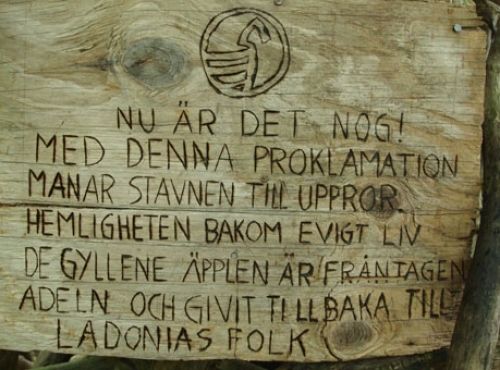 NU ÄR DET NOG!
MED DENNA PROKLAMATION
MANAR STAVNEN TILL UPPROR.
HEMLIGHETEN BAKOM EVIGT LIV
DE GYLLENE ÄPPLEN ÄR FRÅNTAGEN
ADELN OCH GIVIT TILLBAKA TILL
LADONIAS FOLK